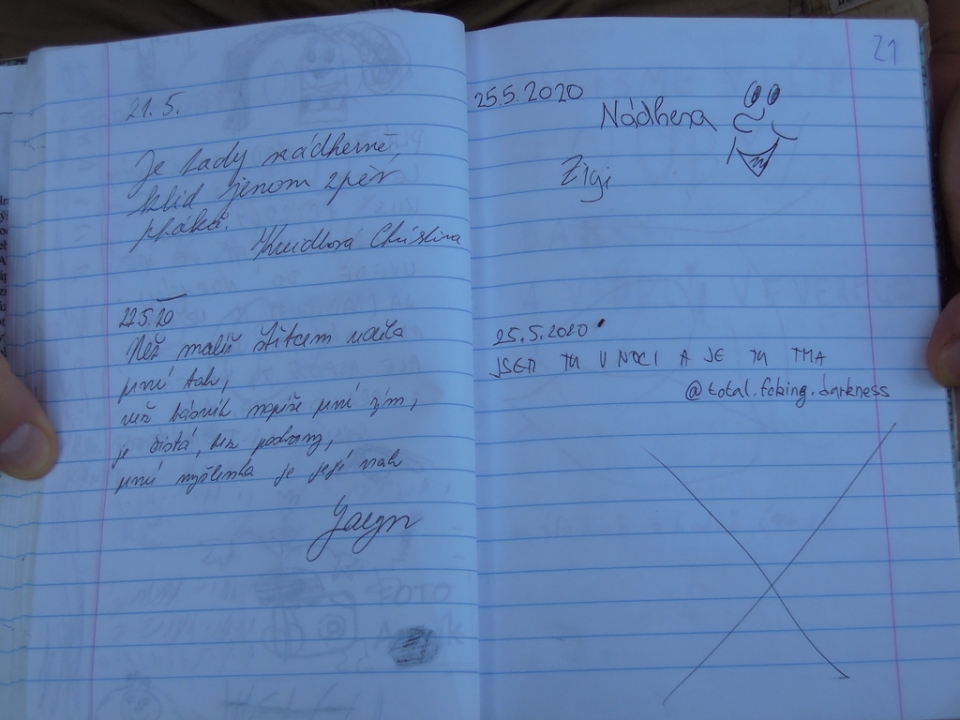 21.5.
Je tady nádherně,
klid jenom zpěv
ptáků.
Christina
22.5.20
Než malíř štětcem udělá
první tah,
než básník napíše první rým,
je čistá, bez podrazu,
první myšlenka je její vrah
25.5.2020
Nádhera
Zigi
25.5.2020
JSEM TU V NOCI A JE TU TMA
@total.fcking.darkness
21